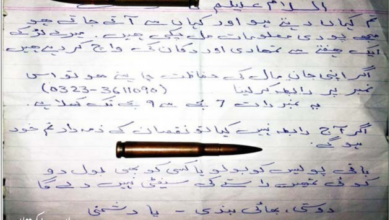 السلام علیکم
تم کہاں رہتے ہو اور کہاں سے آتے جاتے ہو
مجھے پوری معلومات مل چکی ہیں۔ میرے لڑکے
ایک ہفتے سے تمھاری اور دکان کی واچ کر رہے ہیں
اگر اپنی جان مال کی حفاظت چاہتے ہو تو اس
نمبر پر رابطہ کر لینا (0323-3611090)
یہ نمبر رات 7 بجے سے 9 بجے تک
اگر آج رابطہ نہیں کیا تو نقصان کے ذمہ دار تم خود
ہو گے۔
باقی پولیس کو بولو یا کسی کو بھی بول دو
کوئی تمھیں
دوستی، بھائی بندی - یا دشمنی